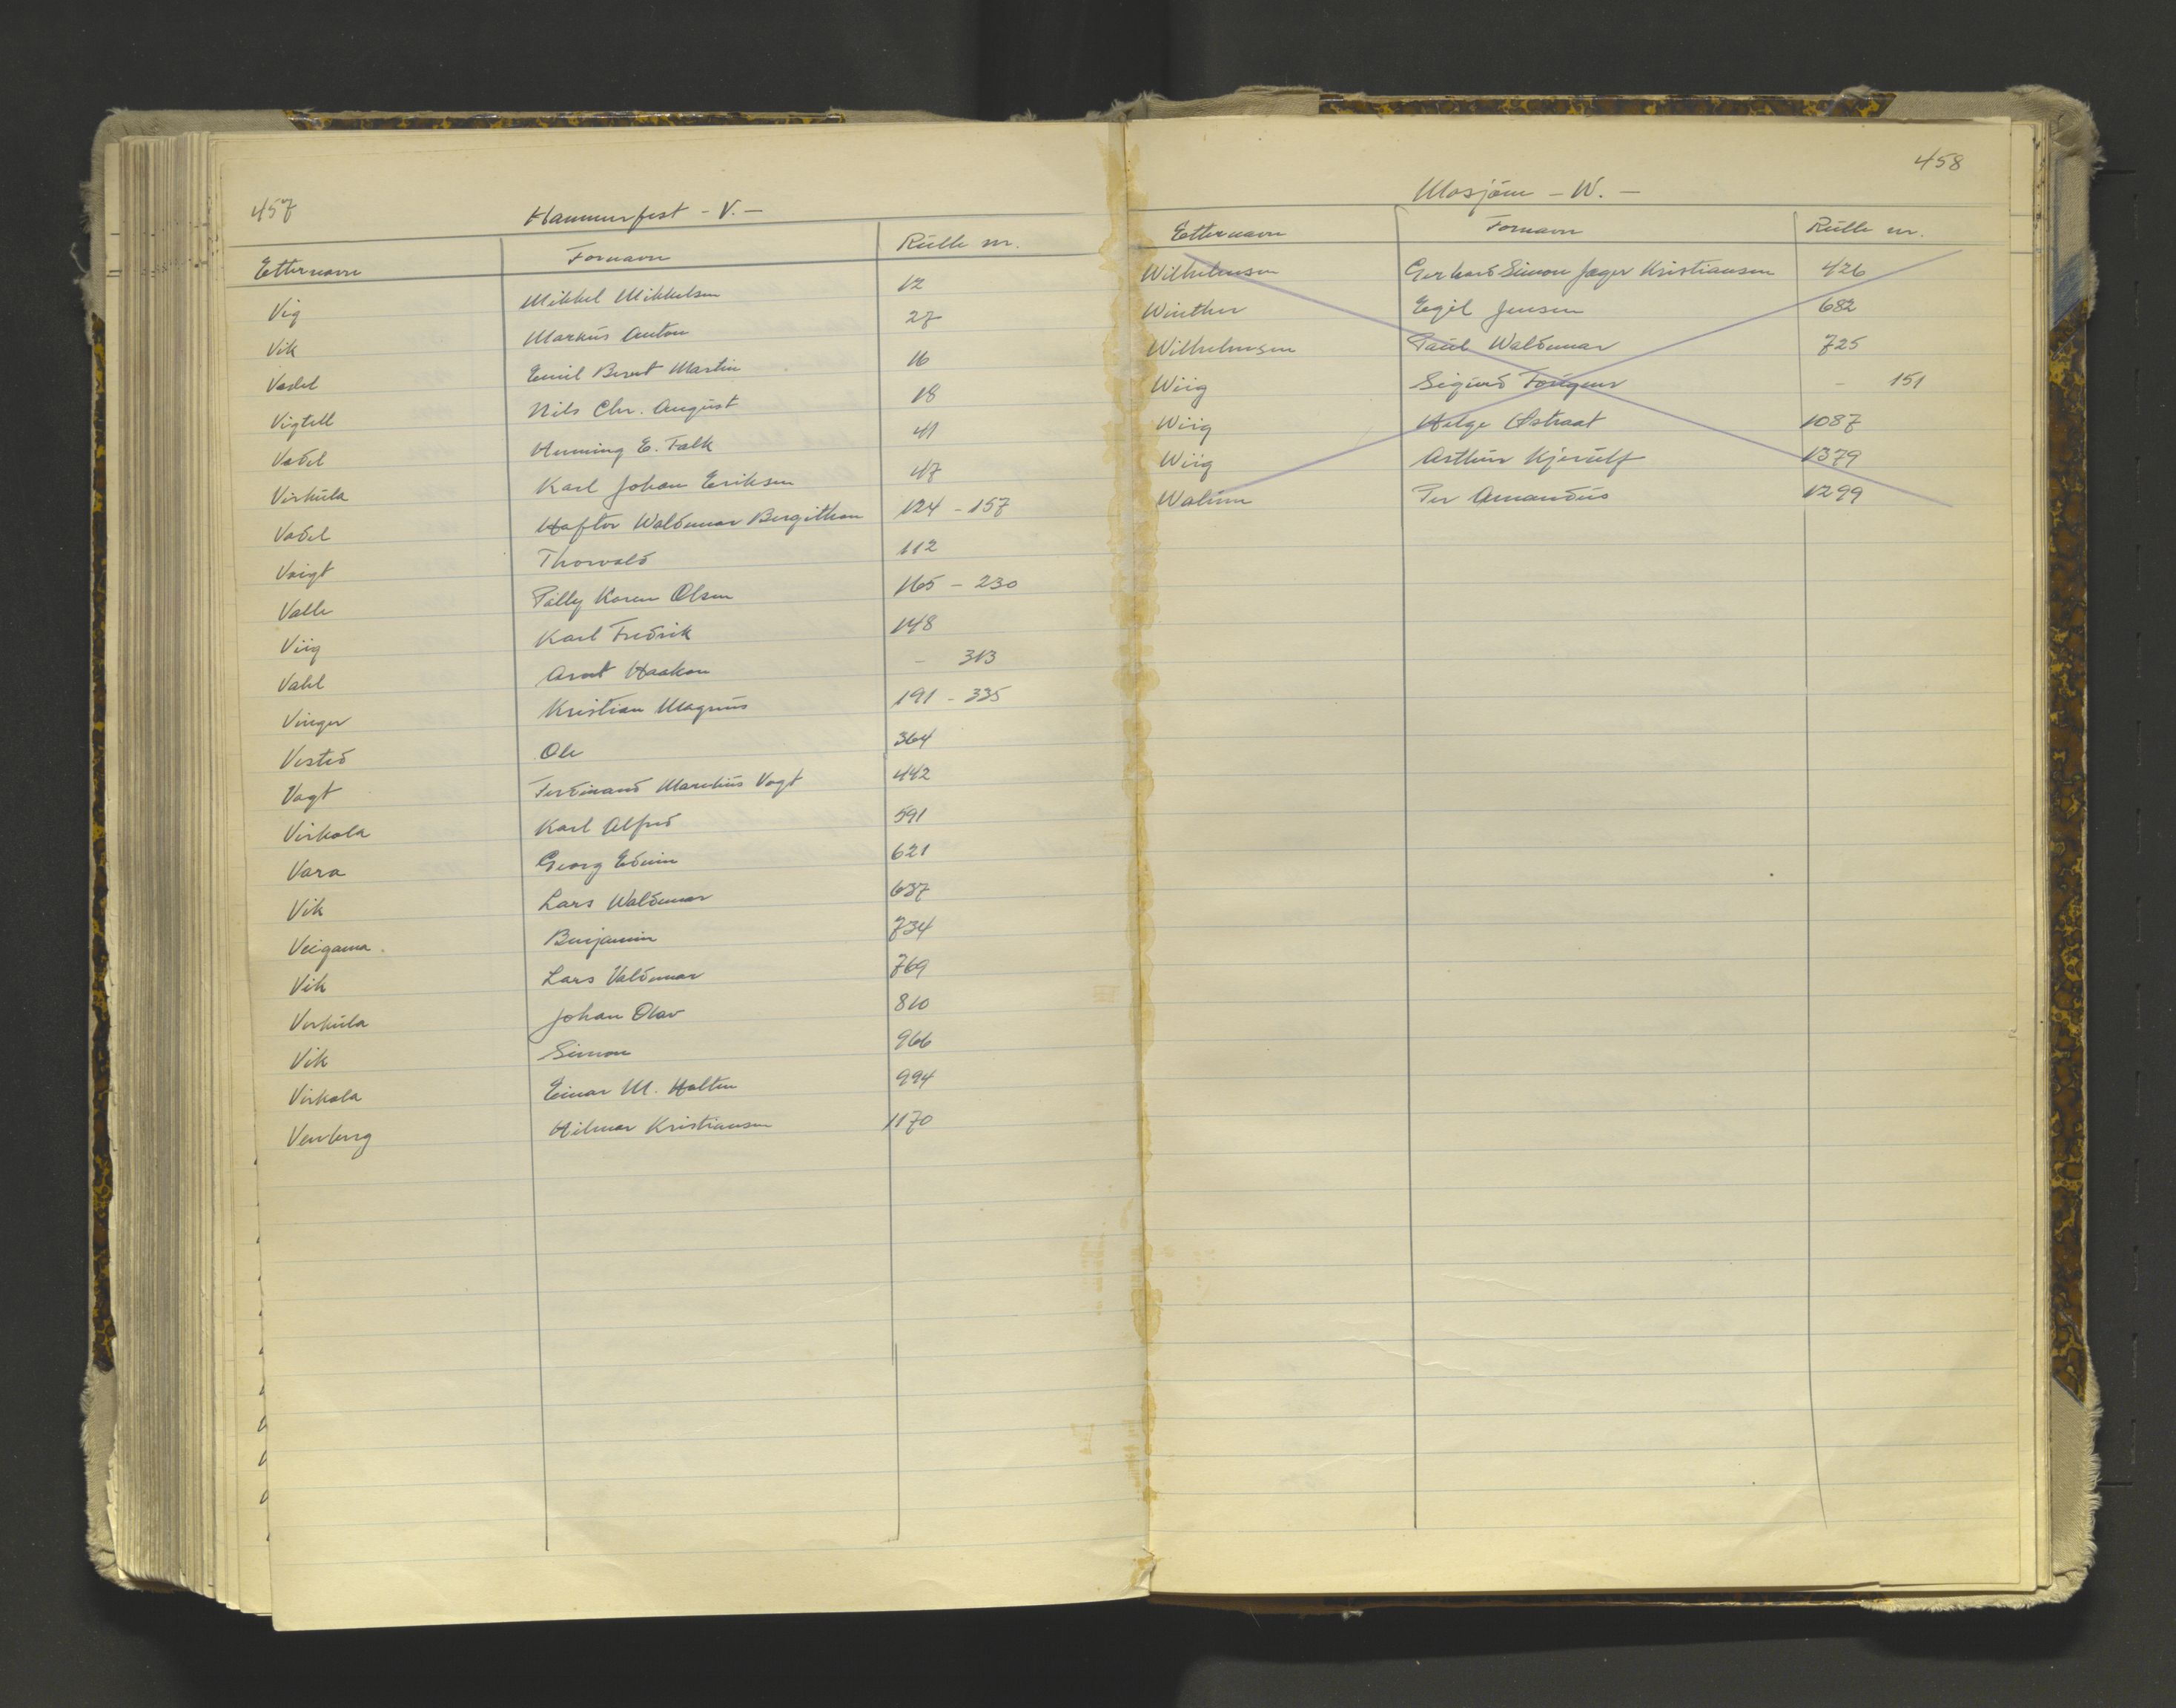 457
Hammerfest - V. -
Etternavn Fornavn Rulle nr.
Vig Mikkel Mikkelsen 12
Vik Markus Anton 27
Vadel Emil Berut Martin 16
Vigtell Nils Chr. August 18
Vadel Henning E. Falk 41
Virkula Karl Johan Eriksen 47
Vadel Haftor Waldemar Bergithon 124 - 157
Voigt Thorvald 112
Valle Pålly Karen Olsen 165 - 230
Viig Karl Fredrik 148
Vahl Arnt Haakon - 313
Vinger Kristian Magnus 191 - 335
Vested Ole 364
Vogt Ferdinand Marelius Vogt 442
Virkola Karl Alfred 591
Vara Georg Edvin 621
Vik Lars Waldemar 637
Veigama Benjamin 734
Vik Lars Valdemar 769
Virkula Johan Olav 810
Vik Simon 966
Virkola Einar M. Holten 994
Venberg Hilmar Kristiansen 1170
458
Mosjøen - W. -
Etternavn Fornavn Rulle nr.
Wilhelmsen Gerhard Simon Jæger Kristiansen 426
Winther Egil Jensen 682
Wilhelmsen Paul Waldemar 725
Wiig Sigurd - 151
Wiig Helge Østraat 1087
Wiig Arthur Kjerulf 1379
Walum Per Amandus 1299